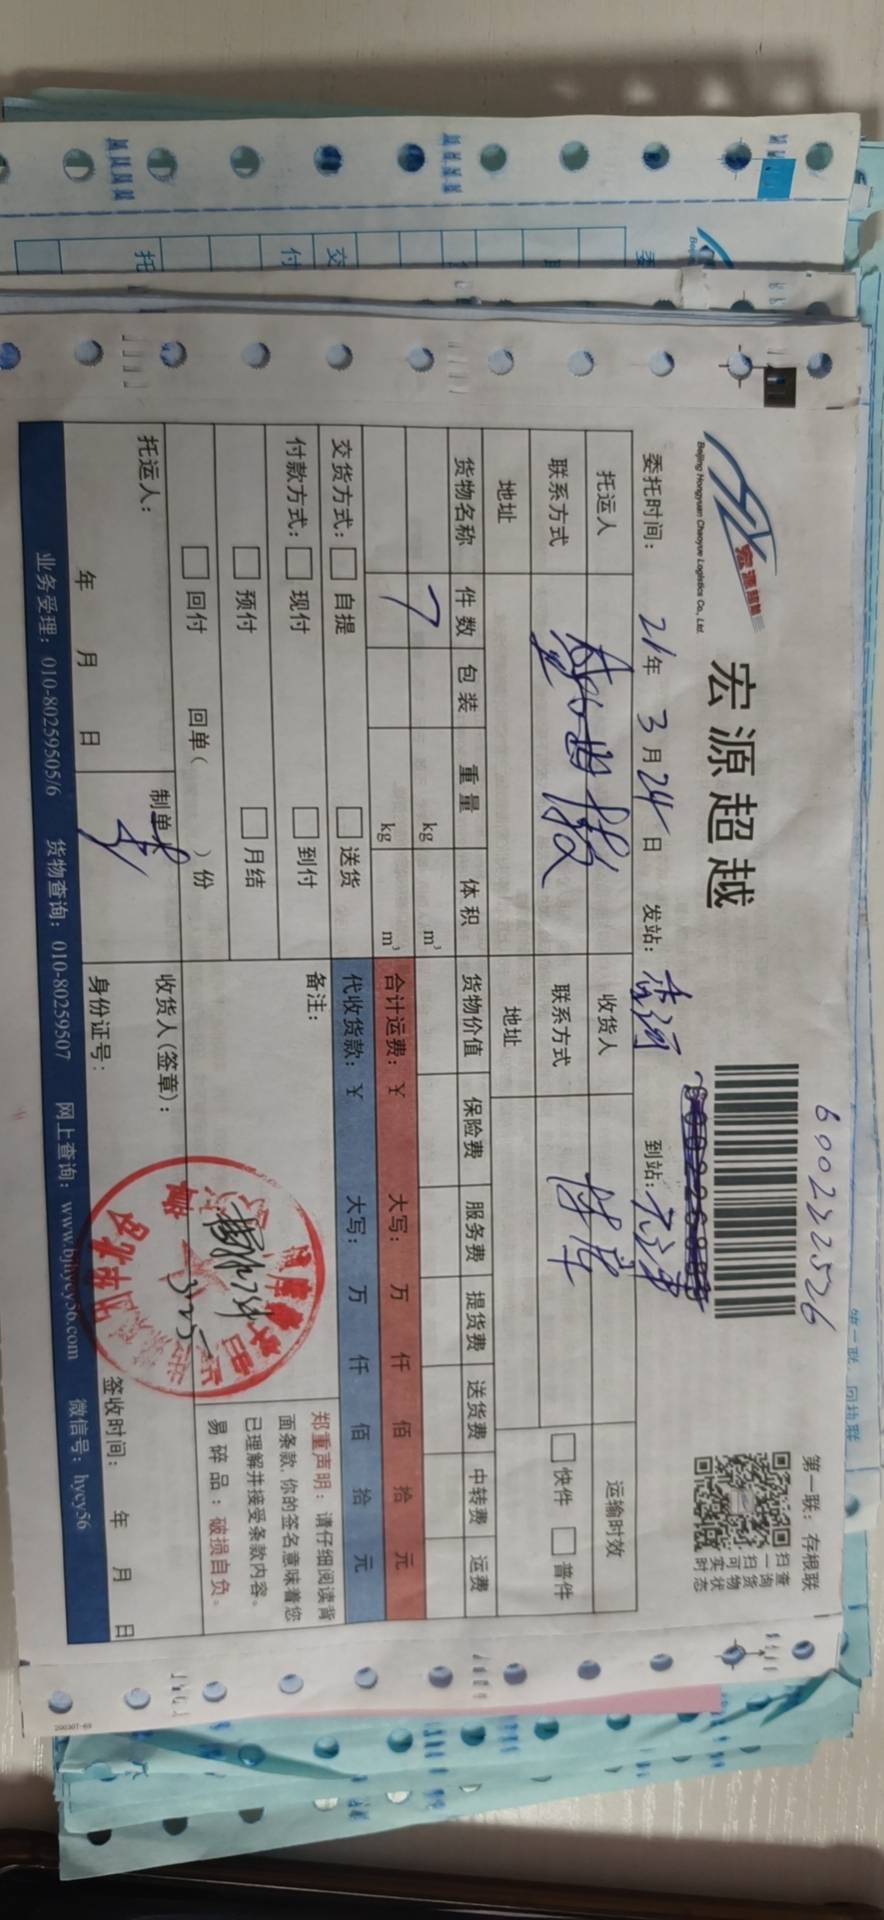 600222526
第一联：存根联
宏源超越
宏源超越
Beijing Hongyuan Chaoyue Logistics Co., Ltd.
扫一扫可实时
查询货物状态
委托时间： 21年 3月24日 发站：香河 到站：天津
托运人 收货人 运输时效
联系方式 联系方式 快件 普件
地址 地址
货物名称 件数 包装 重量 体积 货物价值 保险费 服务费 提货费 送货费 中转费 运费
7 kg m³
kg m³ 合计运费：￥ 大写： 万 仟 佰 拾 元
交货方式： 自提 送货 代收货款：￥ 大写： 万 仟 佰 拾 元
付款方式： 现付 到付 备注：
预付 月结
回付 回单（ ）份
郑重声明：请仔细阅读背
面条款，你的签名意味着您
已理解并接受条款内容。
易碎品：破损自负。
托运人： 制单 收货人(签章)：
3.25
年 月 日 身份证号： 签收时间： 年 月 日
业务受理：010-80259505/6 货物查询：010-80259507 网上查询：www.bjhycy56.com 微信号：hycy56
200307-69